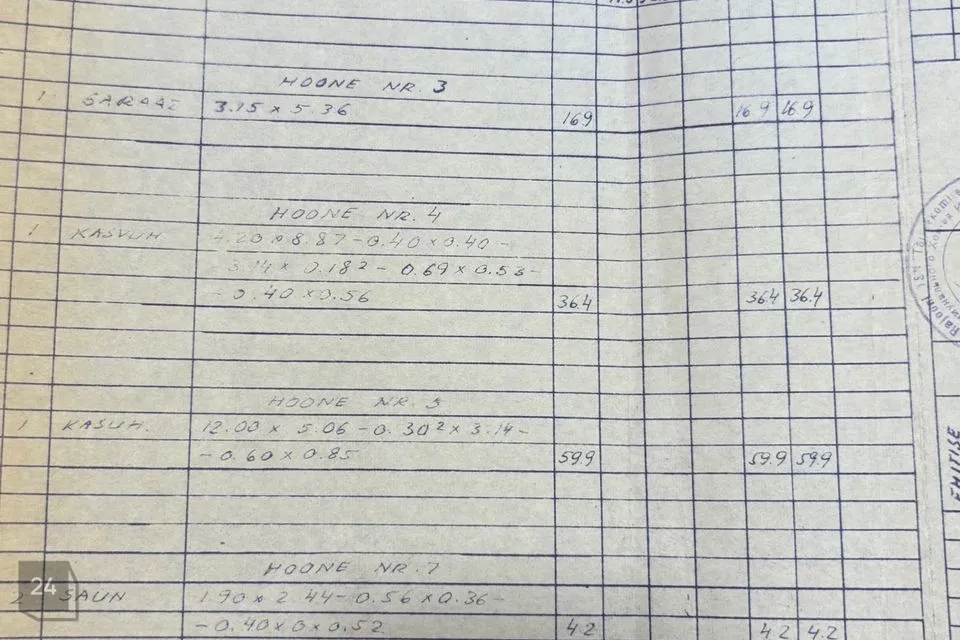 HOONE NR. 3
1 GARAAZ 3.15 x 5.36 16.9 16.9 16.9
HOONE NR. 4
1 KASVUH 4.20 x 8.87 - 0.40 x 0.40 -
3.14 x 0.18² - 0.69 x 0.53 -
- 0.40 x 0.56 36.4 36.4 36.4
HOONE NR. 5
1 KASUH. 12.00 x 5.06 - 0.30² x 3.14 -
- 0.60 x 0.85 59.9 59.9 59.9
HOONE NR. 7
2 SAUN 1.90 x 2.44 - 0.56 x 0.36 -
- 0.40 x 0 x 0.52 4.2 4.2 4.2
Rajooni TSN
EHITISE
24